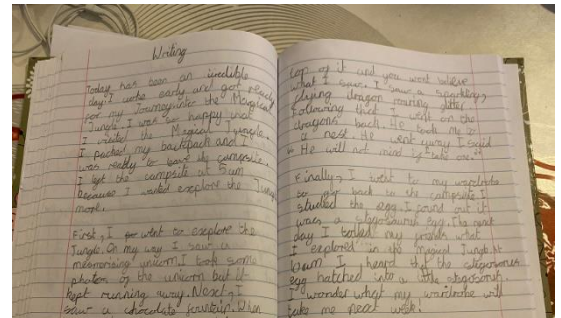 Writing
Today has been an incredible
day! I woke early and got ready
for my Journey into the Magical
Jungle. I was so happy that
I visited the Magical jungle.
I packed my backpack and I
was ready to leave its campsite.
I left the campsite at 5am
because I wanted explore the Jungle
more.
First, I went to explore the
Jungle. On my way I saw a
mesmerising unicorn. I took some
photos of the unicorn but it
kept running away. Next, I
saw a chocolate fountain. When
top of it and you wont believe
what I saw. I saw a sparkling,
flying dragon roaring glitter
Following that I went on the
dragons back. He took me to
a nest. He went away I said
"He will not mind if I take one."
Finally, I went to my wardrobe
to go back to the campsite I
studied the egg. I found out it
was a stegosaurus egg. The next
day I told my friends what
I explored in the Magical Jungle. At
10am I heard that the stegosorus
egg hatched into a little stegosorus.
I wonder what my wardrobe will
take me next week.